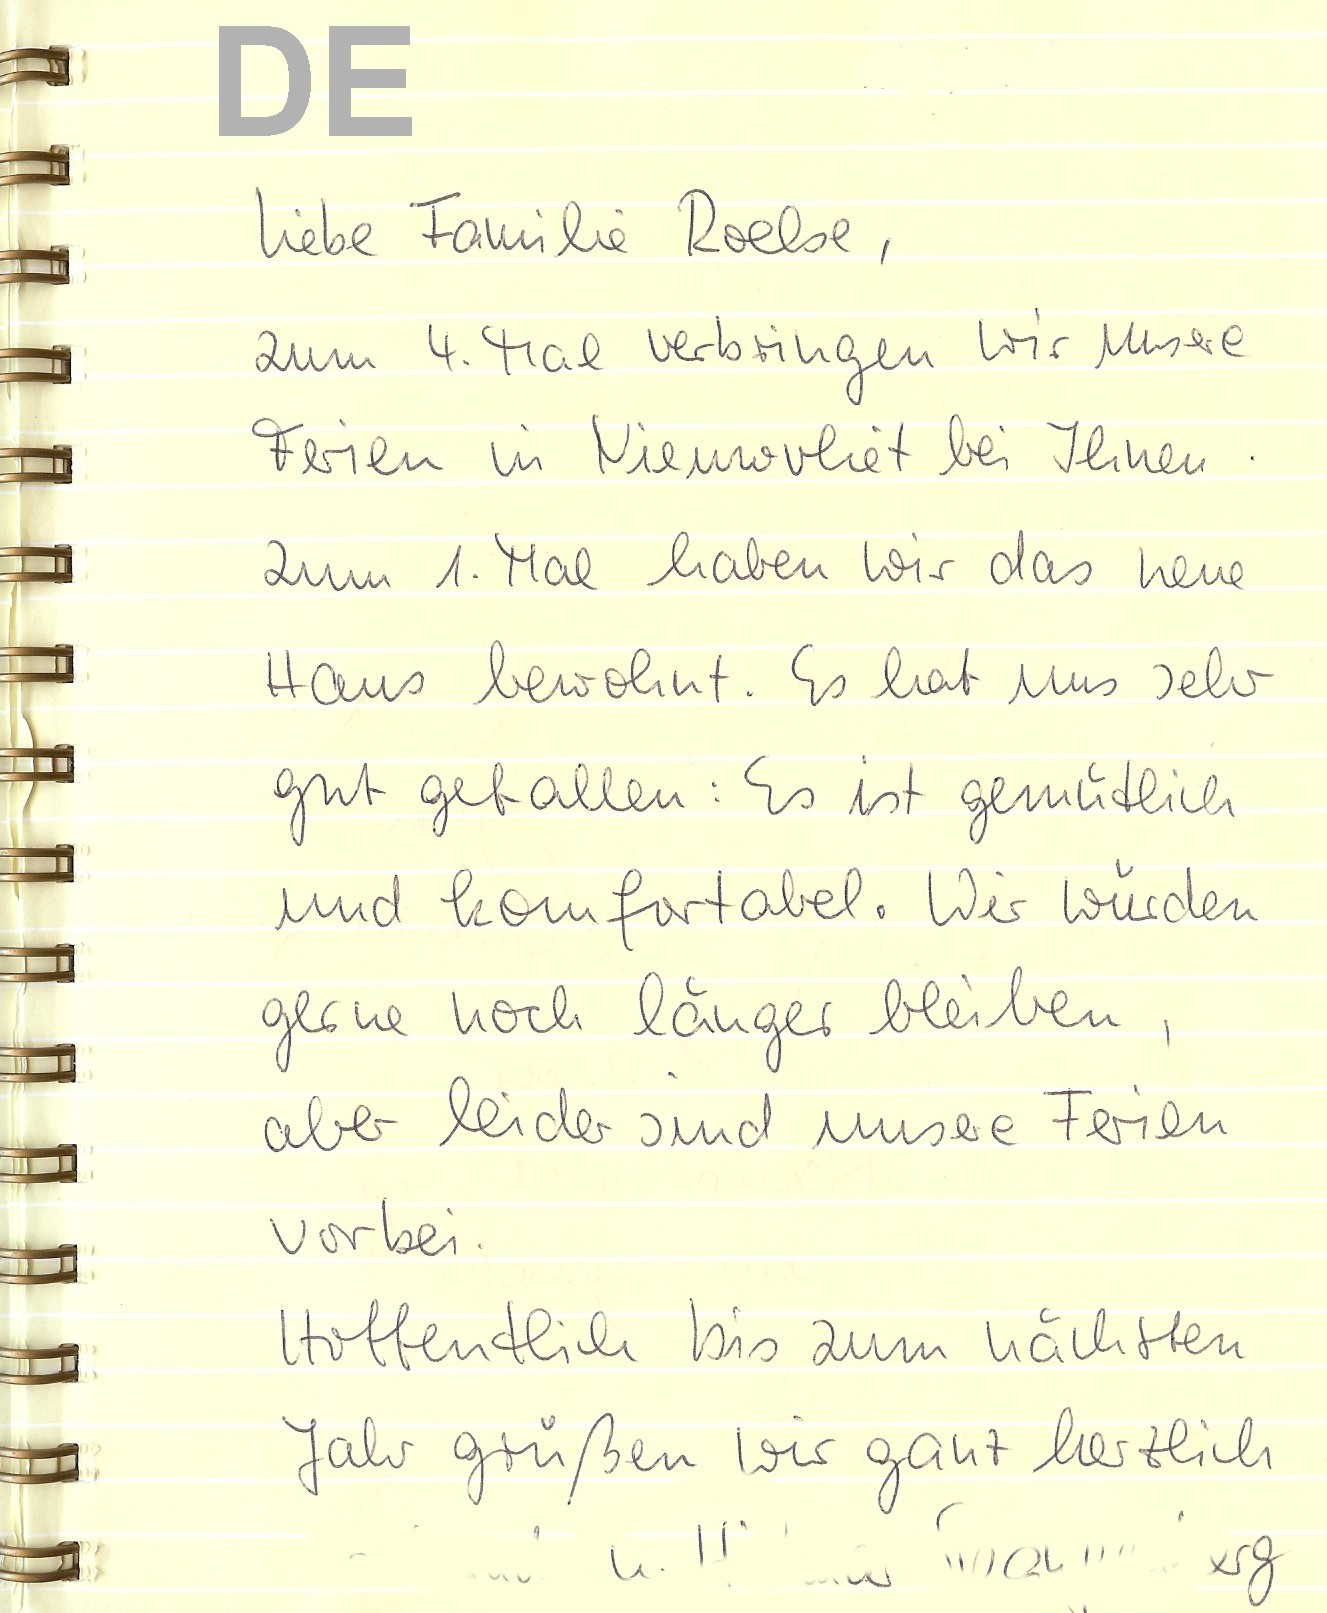 DE
Liebe Familie Roelse,
zum 4. Mal verbringen wir unsere
Ferien in Nieuwvliet bei Ihnen.
Zum 1. Mal haben wir das neue
Haus bewohnt. Es hat uns sehr
gut gefallen: Es ist gemütlich
und komfortabel. Wir würden
gerne noch länger bleiben,
aber leider sind unsere Ferien
vorbei.
Hoffentlich bis zum nächsten
Jahr grüßen wir ganz herzlich
u.